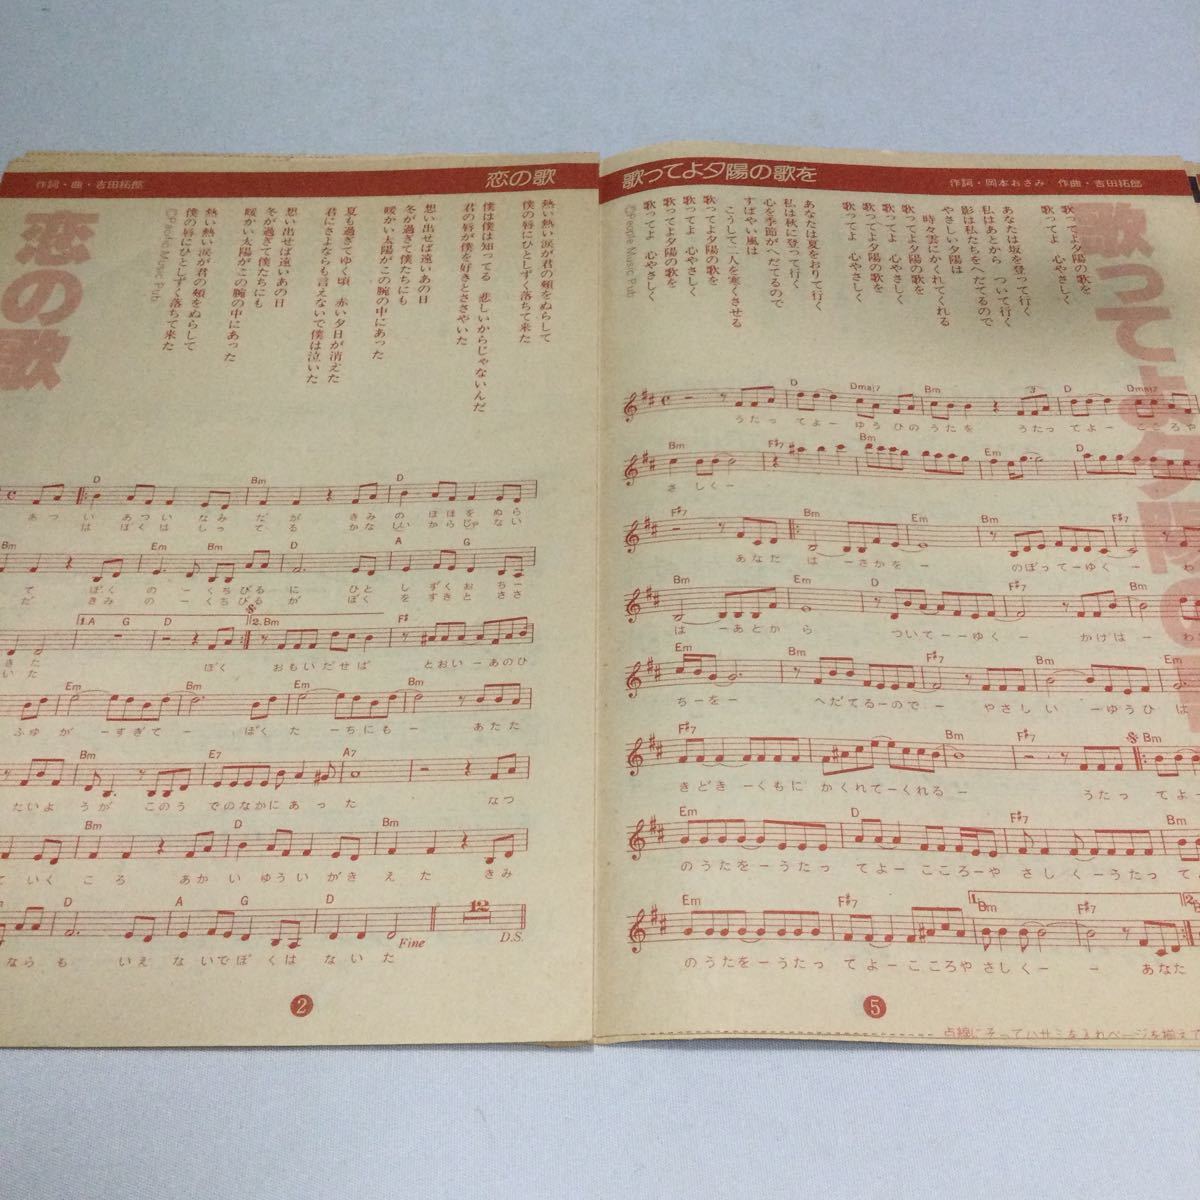 作詞・曲・吉田拓郎
恋の歌
恋の歌
熱い熱い涙が君の頬をぬらして
僕の唇にひとしずく落ちて来た
僕は僕は知ってる 悲しいからじゃないんだ
君の唇が僕を好きとささやいた
想い出せば遠いあの日
冬が過ぎて僕たちにも
暖かい太陽がこの腕の中にあった
夏も過ぎてゆく頃 赤い夕日が消えた
君にさよならも言えないで僕は泣いた
想い出せば遠いあの日
冬が過ぎて僕たちにも
暖かい太陽がこの腕の中にあった
熱い熱い涙が君の頬をぬらして
僕の唇にひとしずく落ちて来た
D Bm D
あつ い あつい なみ だ が きみ の ほほを ぬら
は ぼくは しっ て る かな しい から じゃ ない
Bm Em Bm D A G
て ぼく の ー くち びる に ひと し ずく お ちー
だ きみ の ー くち びる が ぼく を すき と ささ
1. A G D 2. Bm F♯
きた ぼく おもいだせば とおい ー あのひ
いた
Em Bm Em Bm
ふゆ が ー すぎて ー ぼく た ー ちにも ー あたた
Bm E7 A7
たいよ うが このう でのなかに あっ た なつ
Bm D Bm
ていく ころ あか い ゆうい がき えた きみ
Bm D A G D
Fine
12
D.S.
ならも いえ ないでぼ くは ないた
2
歌ってよ夕陽の歌を
作詞・岡本おさみ 作曲・吉田拓郎
歌ってよ夕陽の歌を
歌ってよ 心やさしく
あなたは坂を登って行く
私はあとから ついて行く
影は私たちをへだてるので
やさしい夕陽は
時々雲にかくれてくれる
歌ってよ夕陽の歌を
歌ってよ 心やさしく
歌ってよ夕陽の歌を
歌ってよ 心やさしく
あなたは夏をおりて行く
私は秋に登って行く
心を季節がへだてるので
すばやい風は
こうして二人を寒くさせる
歌ってよ夕陽の歌を
歌ってよ 心やさしく
歌ってよ夕陽の歌を
歌ってよ 心やさしく
©People Music Pub
D Dmaj7 Bm 3 D Dmaj7
うたっ てよー ゆうひのうたを うたっ てよー こころや
Bm F♯7 Bm Em D
さしくー
F♯7 Bm Em Bm
あなた はーさかをー のぼってーゆくー わ
Bm Em D F♯7 Bm
はーあとから ついてーーゆくー かげはー わ
Em Bm F♯7 Em Bm
ちーをー へだてるーのでー やさしいーゆうひは
F♯7 Bm F♯7 Bm
きどきーくもに かくれてーくれるー うたっ てよー
Em D F♯7 Bm
のうたをーうたっ てよー こころーや さしくーうたっ てよ
Em F♯7 1. Bm F♯7 2.
のうたをーうたっ てよー こころや さしくー ー あなた
5
点線にそってハサミを入れページを揃えて